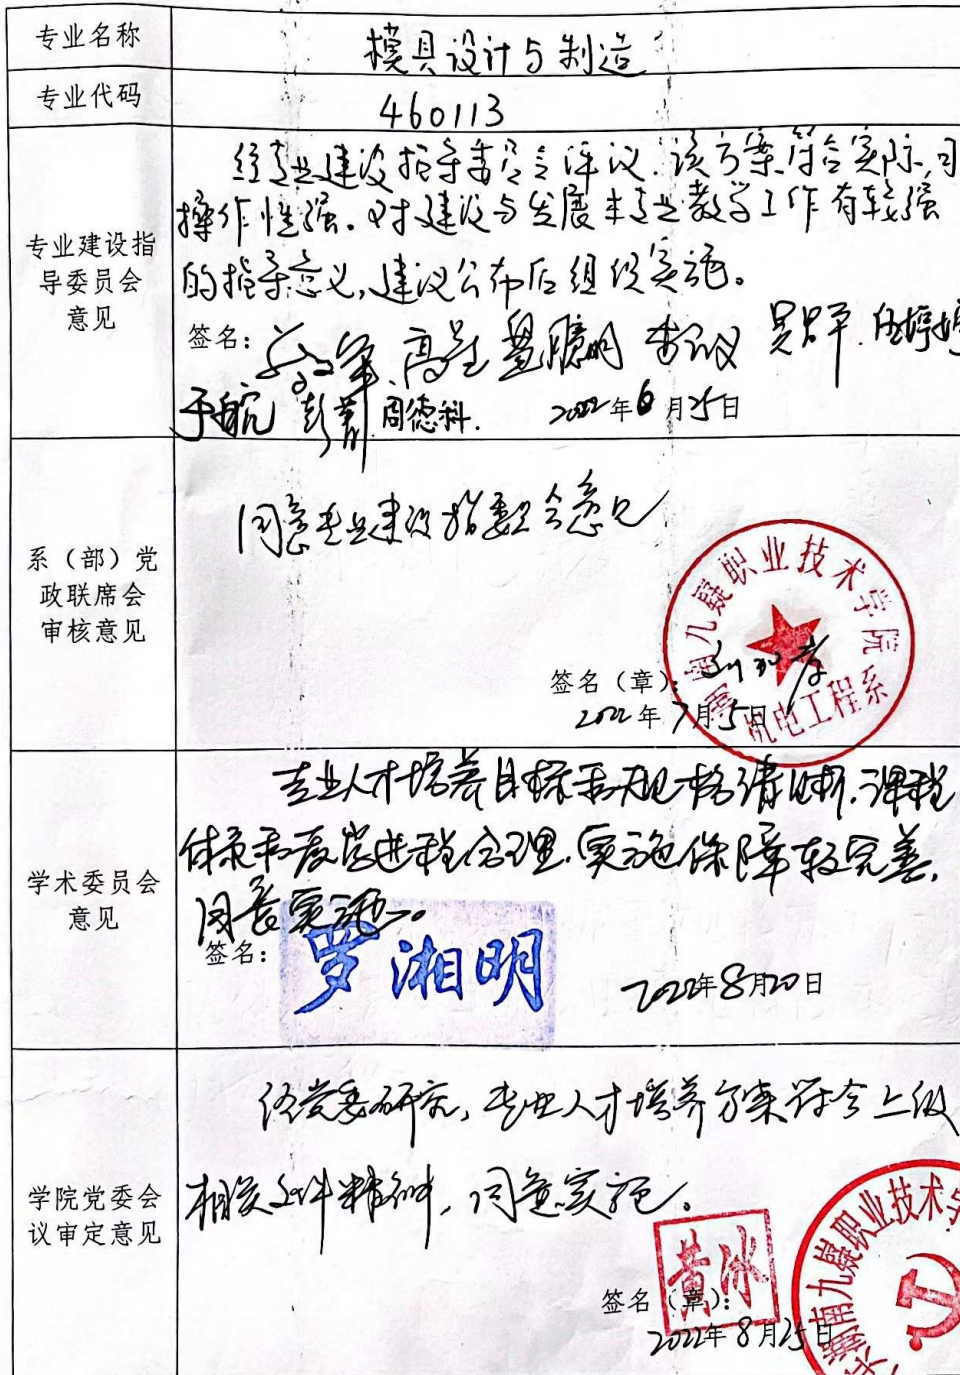 专业名称
模具设计与制造
专业代码
460113
专业建设指
导委员会
意见
经专业建设指导委员会评议,该方案符合实际,可
操作性强。对建设与发展本专业教学工作有较强
的指导意义,建议公布后组织实施。
签名:
于航 彭菁 周德科.
2022年6月25日
系(部)党
政联席会
审核意见
同意专业建设指委会意见
湖南九嶷职业技术学院
机电工程系
签名(章):
2022年7月5日
学术委员会
意见
专业人才培养目标和规格清晰,课程
体系和教学进程合理,实施保障较完善,
同意实施。
签名:
罗湘明
2022年8月20日
学院党委会
议审定意见
经党委研究,专业人才培养方案符合上级
相关文件精神,同意实施。
湖南九嶷职业技术学
黄冰
签名(章):
2022年8月25日